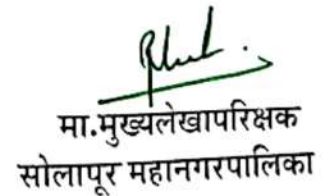 मा.मुख्यलेखापरिक्षक
सोलापूर महानगरपालिका